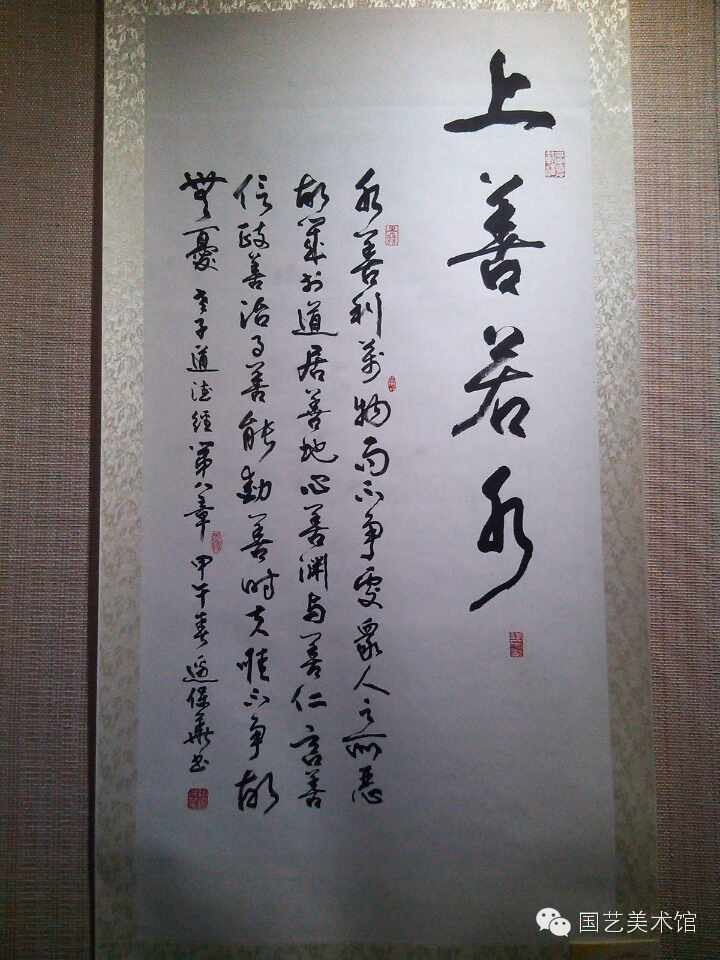 上善若水
水善利萬物而不争處衆人之所惡
故幾於道居善地心善渊與善仁言善
信政善治事善能動善時夫唯不争故
無憂 老子道德經第八章 甲午春 保華书
国艺美术馆